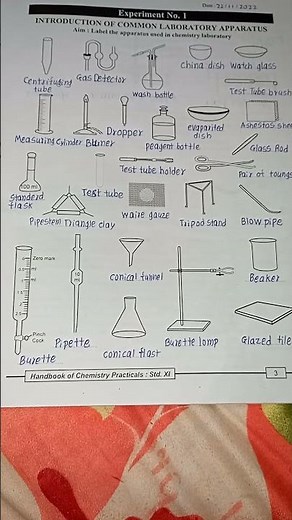 Date 22/11/2022
Experiment No. 1
INTRODUCTION OF COMMON LABORATORY APPARATUS
Aim : Label the apparatus used in chemistry laboratory
Centrifuging tube
Gas Detector
wash bottle
china dish
watch glass
Test Tube brush
Measuring Cylinder
Burner
Dropper
Reagent bottle
evaporited dish
Asbestos
Glass Rod
100 ml
Standerd flask
Test tube holder
Pair of toungs
Test tube
Pipestem Triangle clay
waire gauze
Tripod stand
Blow pipe
Zero mark
10 ml
Pinch Cock
Burette
Pipette
conical funnel
conical flast
Burette lomp
Beaker
Glazed tile
Handbook of Chemistry Practicals : Std. XI
3